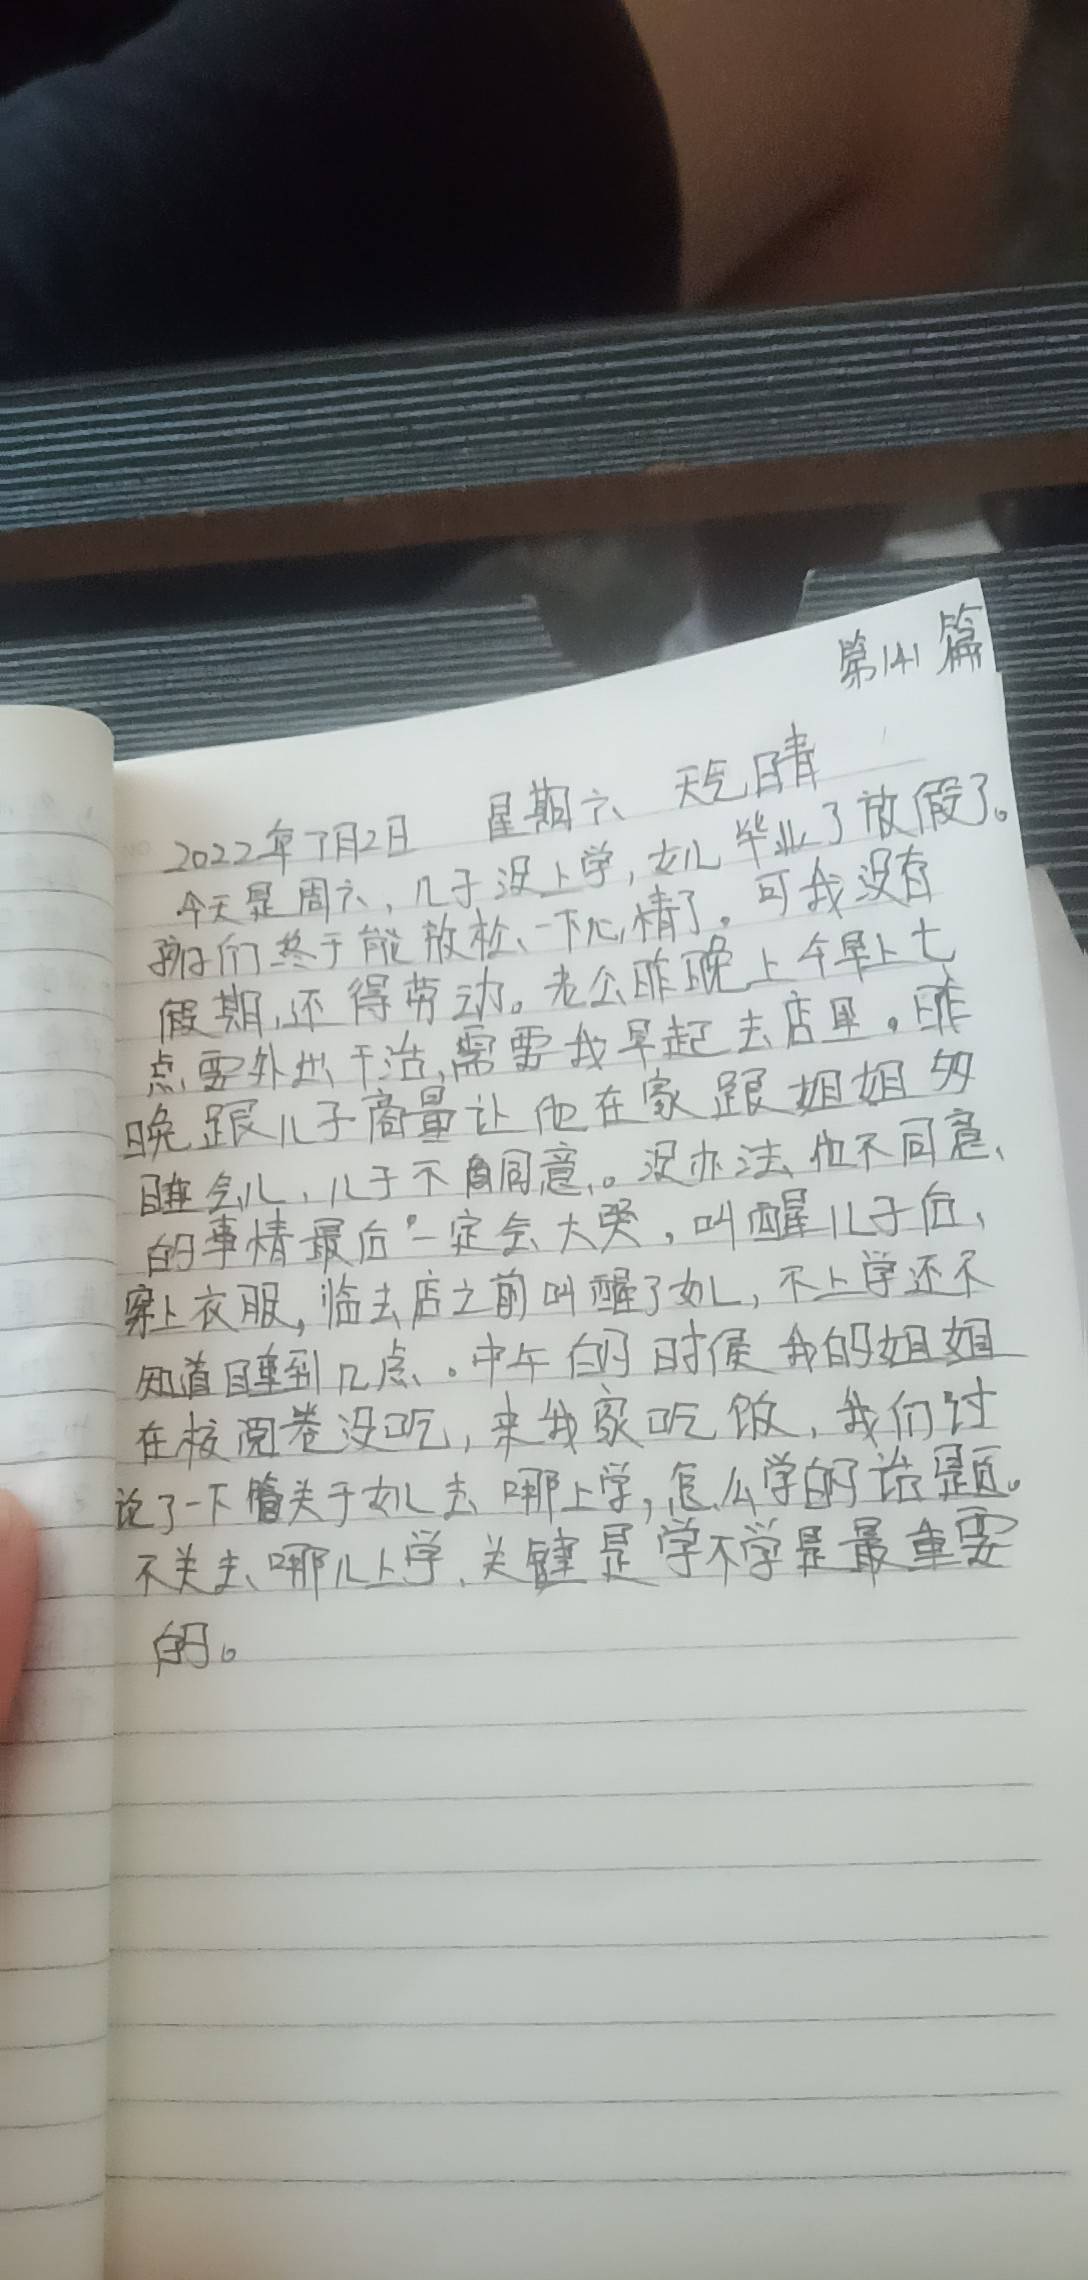 第141篇
2022年7月2日 星期六 天气晴
今天是周六,儿子没上学,女儿毕业了放假了。
孩子们终于能放松一下心情了。可我没有
假期,还得劳动。老公昨晚上今早上七
点要外出干活,需要我早起去店里。昨
晚跟儿子商量让他在家跟姐姐多
睡会儿,儿子不同意。没办法,他不同意
的事情最后一定会大哭,叫醒儿子后,
穿上衣服,临去店之前叫醒了女儿,不上学还不
知道睡到几点。中午的时候我的姐姐
在校阅卷没吃,来我家吃饭,我们讨
论了一下关于女儿去哪上学,怎么学的话题。
不关去哪儿上学,关键是学不学是最重要
的。